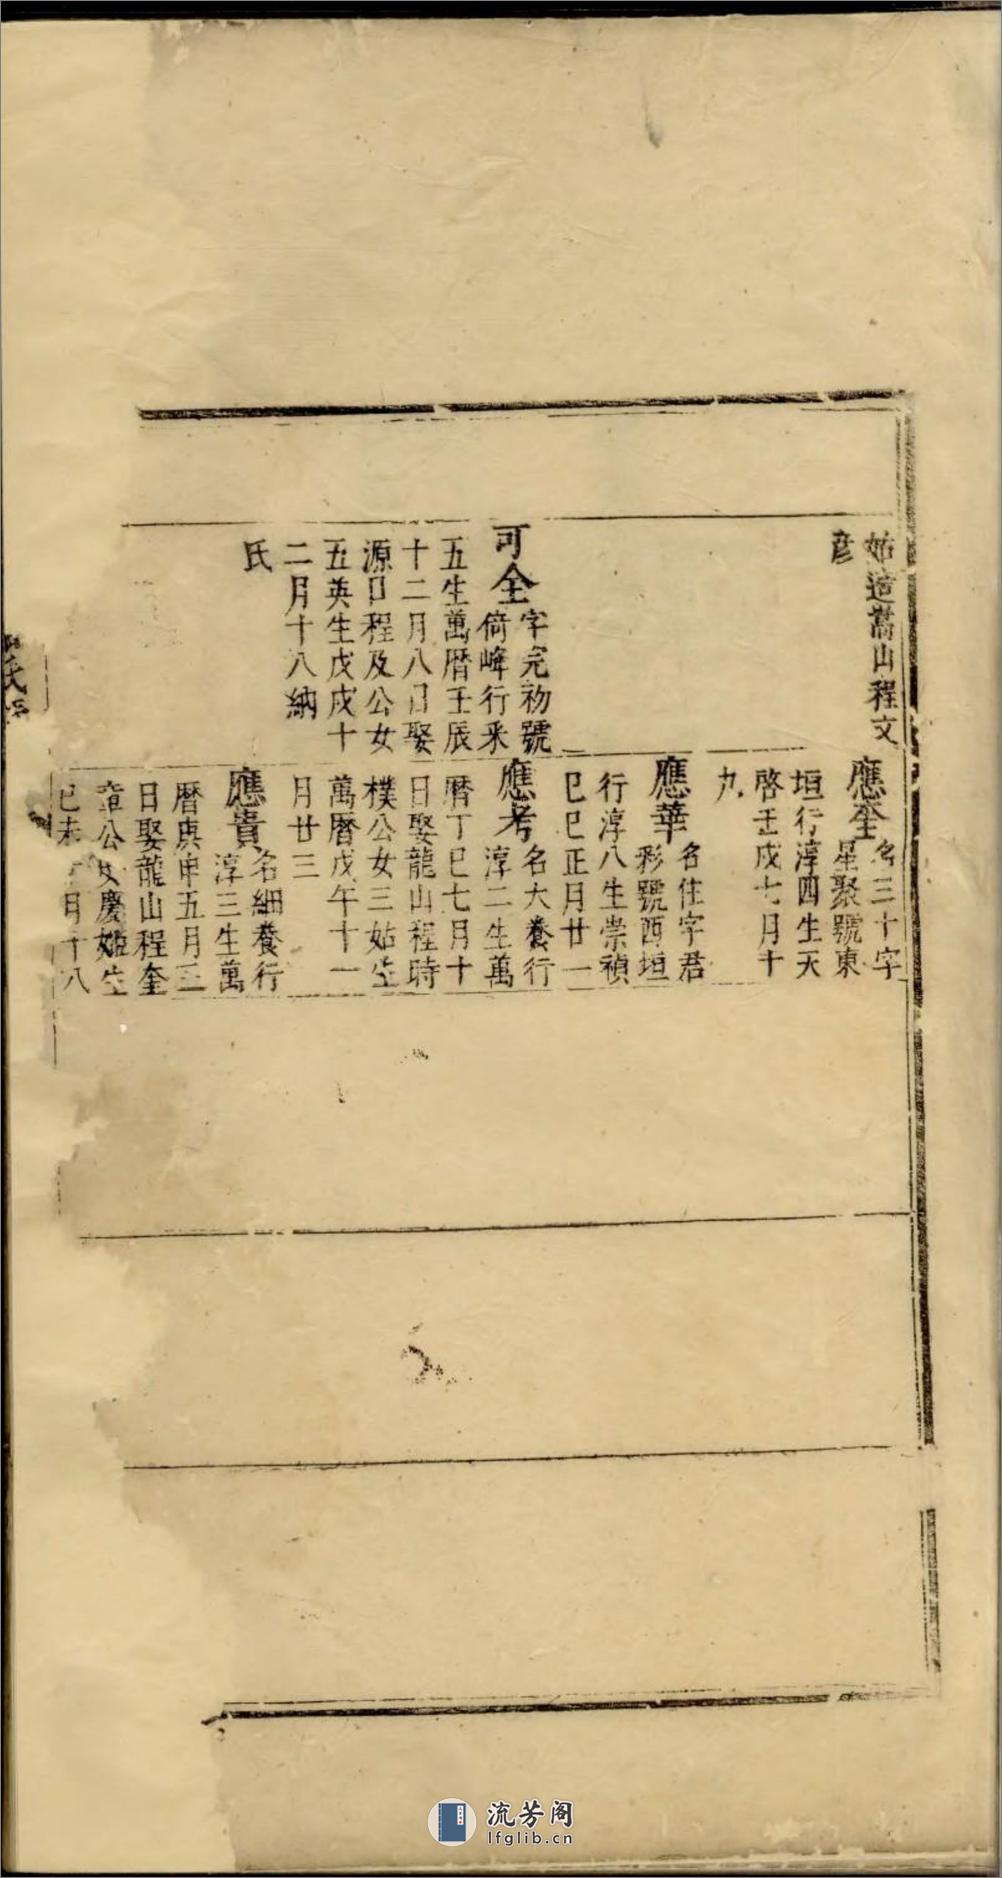 姑造嵩山程文
彥
可全字完初號
倚峰行釆
五生萬曆壬辰
十二月八日娶
源口程及公女
五英生戊戌十
二月十八納
氏
應奎名三十字
星聚號東
垣行淳四生天
啓壬戌七月十
九
應華名住字君
彩號西垣
行淳八生崇禎
己巳正月廿一
應考名大養行
淳二生萬
曆丁巳七月十
日娶龍山程時
樸公女三姑生
萬曆戊午十一
月廿三
應貴名細養行
淳三生萬
曆庚申五月三
日娶龍山程奎
章公女慶姬生
己未月十八
氏
流芳阁
lfglib.cn